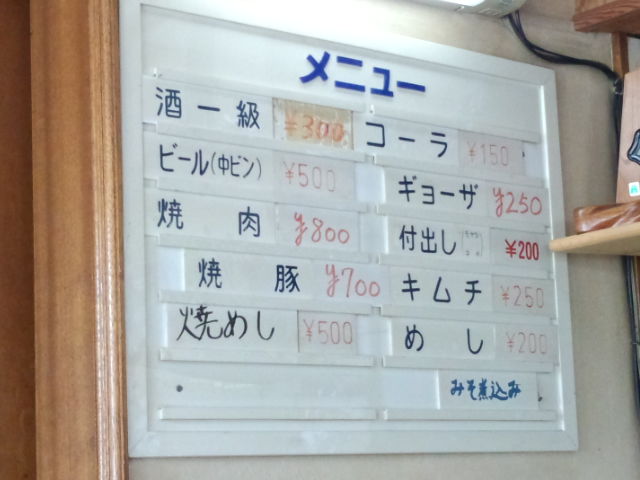 メニュー
酒一級 ¥300
ビール(中ビン) ¥500
焼肉 ¥800
焼豚 ¥700
焼めし ¥500
コーラ ¥150
ギョーザ ¥250
付出し ¥200
キムチ ¥250
めし ¥200
みそ煮込み